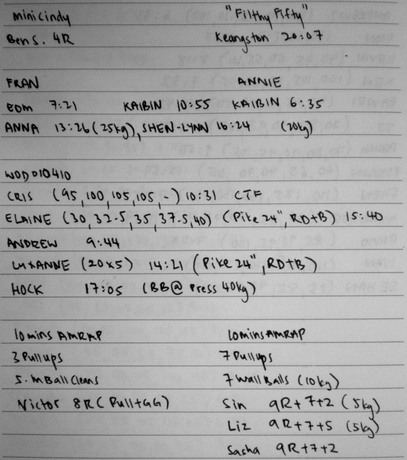 minicindy "Filthy Fifty"
Ben S. 4R Keangston 20:07
FRAN ANNIE
EDM 7:21 KAIBIN 10:55 KAIBIN 6:35
ANNA 13:26 (25kg), SHEN-LYNN 16:24 (20kg)
WOD 010410
CRIS (95, 100, 105, 105, -) 10:31 CTF
ELAINE (30, 32.5, 35, 37.5, 40) (Pike 24", RD+B) 15:40
ANDREW 9:44
LUXANNE (20x5) 14:21 (Pike 24", RD+B)
HOCK 17:05 (BB@ Press 40kg)
10mins AMRAP 10mins AMRAP
3 Pullups 7 Pullups
5. MBall Cleans 7 Wall Balls (10kg)
Victor 8R (Pull+GG) Sin 9R+7+2 (5kg)
Liz 9R+7+5 (5kg)
Sasha 9R+7+2